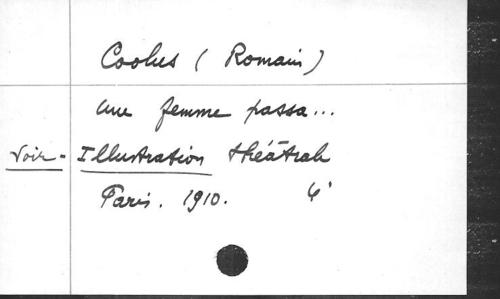 Coolus (Romain)
Une femme passa...
Voir - Illustration théâtrale
Paris. 1910. 4'